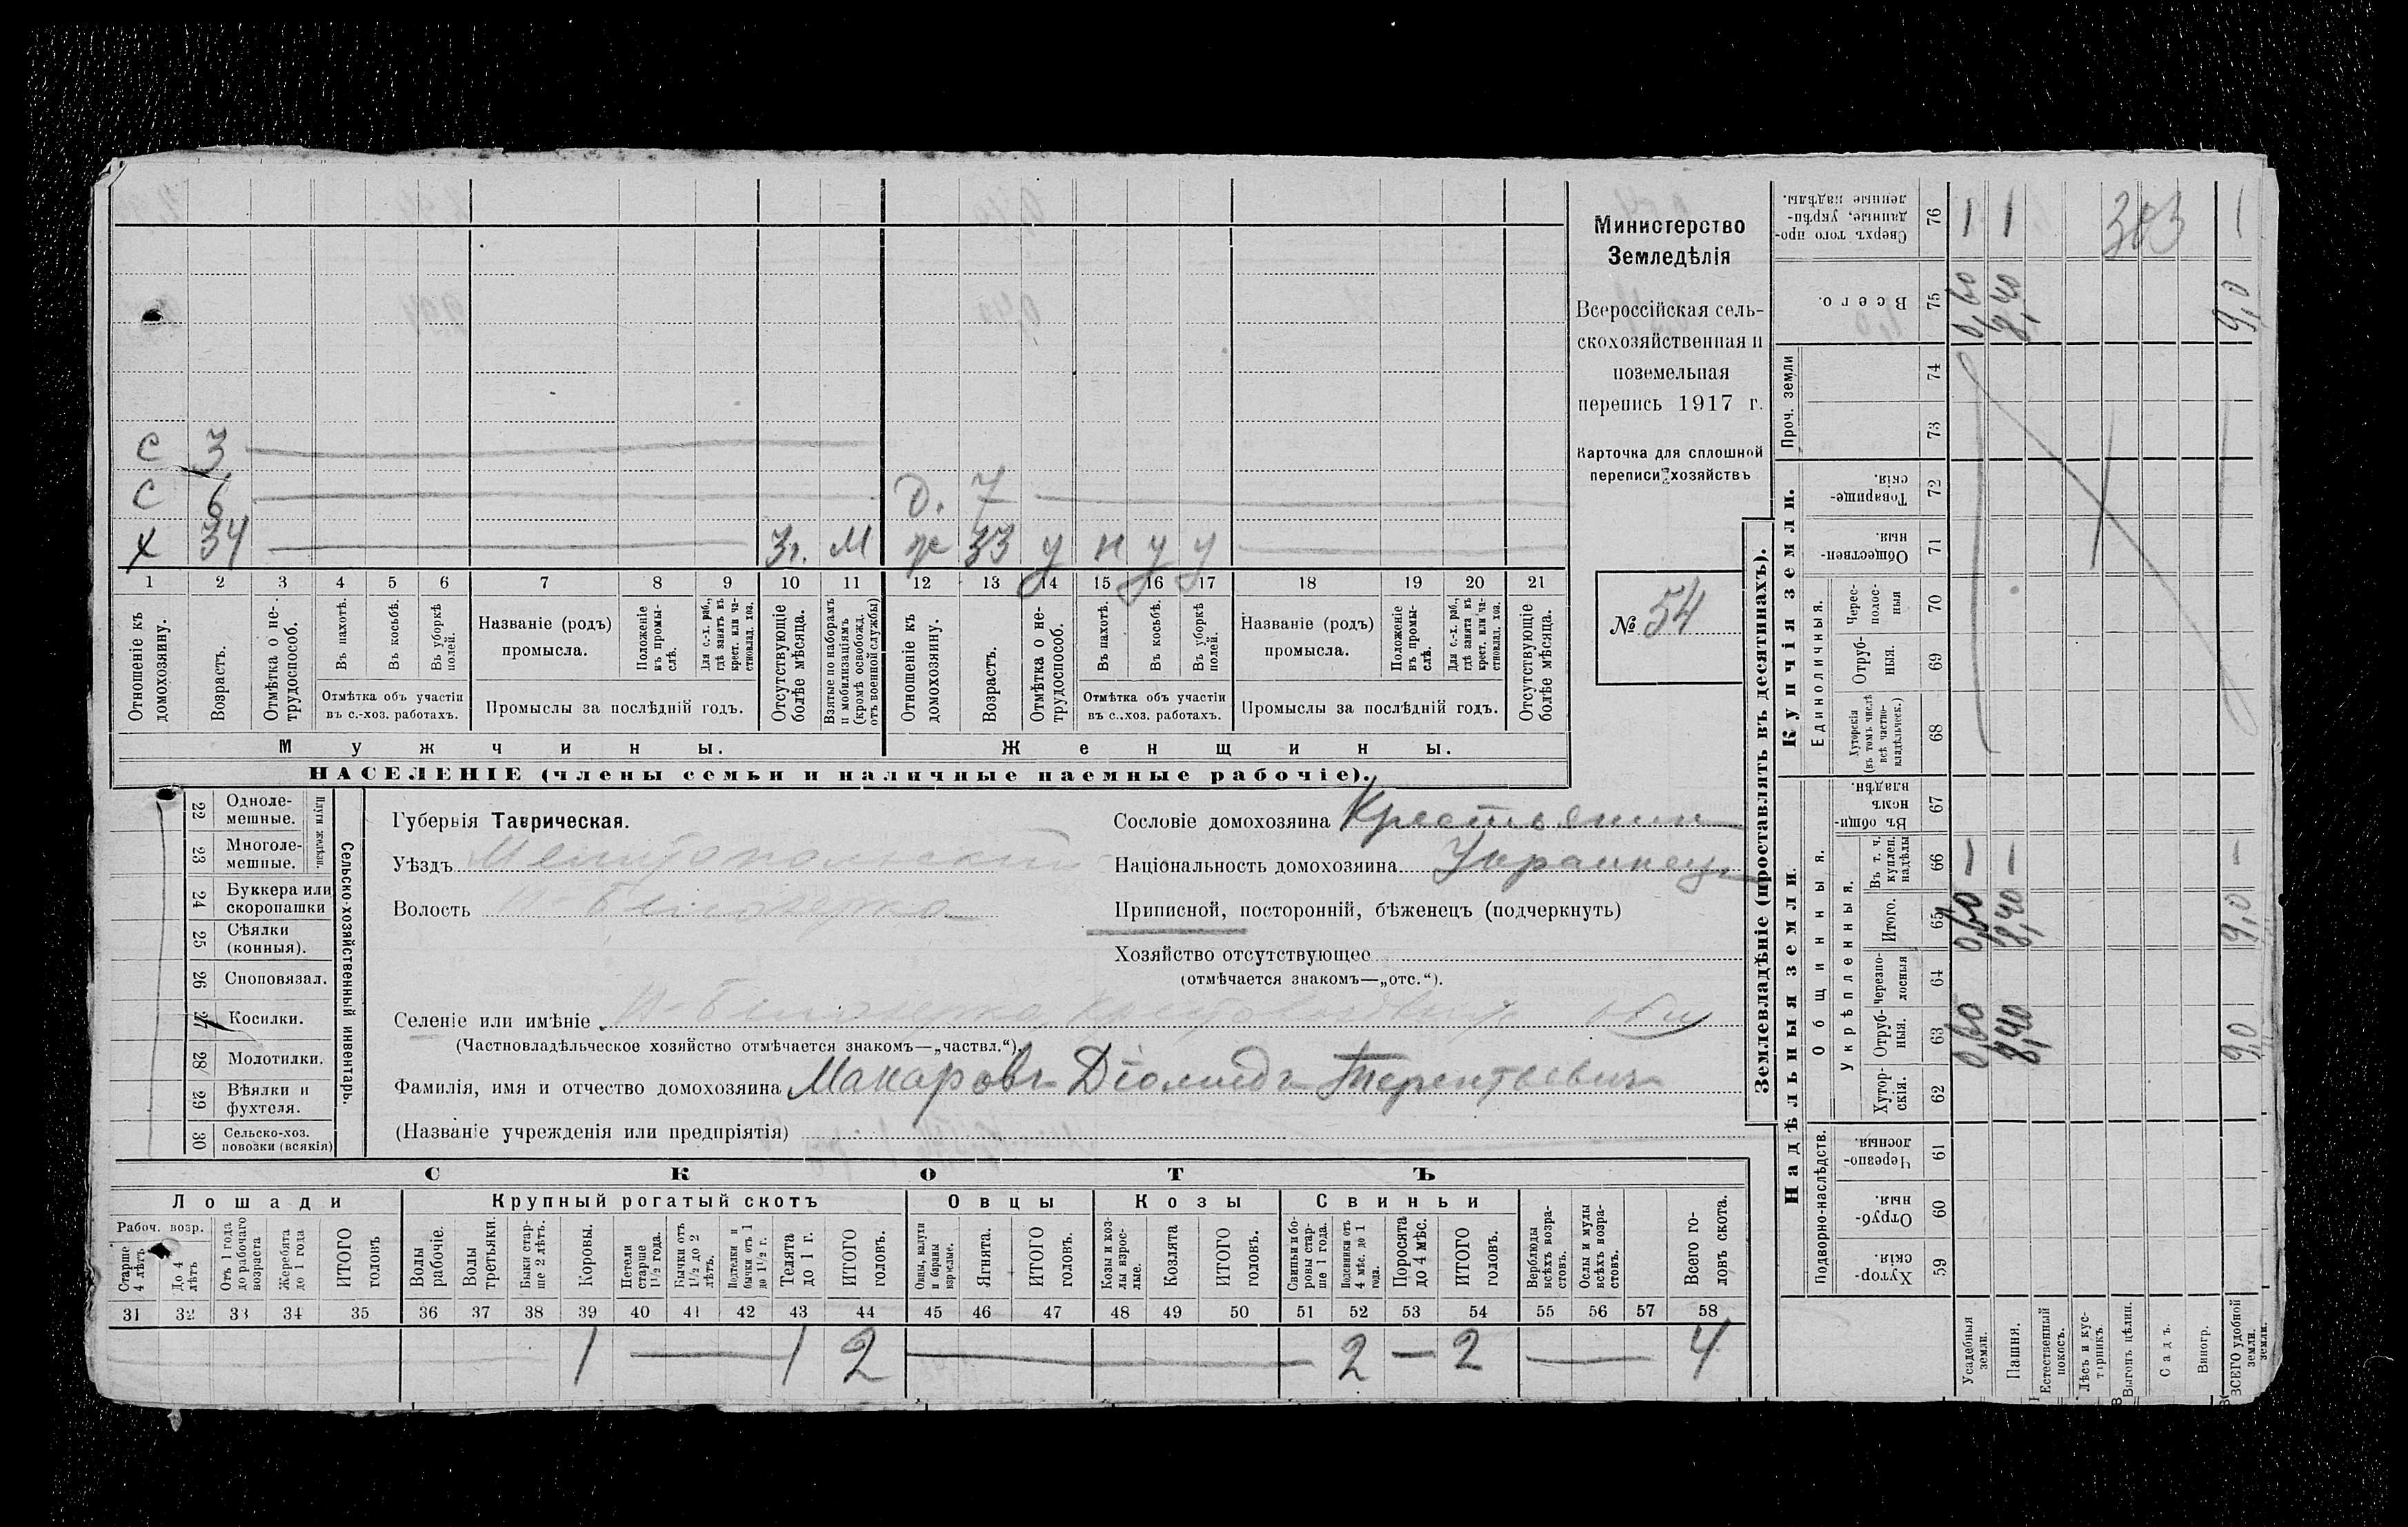 С 3
С 6 Д. 7
Х 34 3г. М ж 33 у н у у
1 2 3 4 5 6 7 8 9 10 11 12 13 14 15 16 17 18 19 20 21
Отношеніе къ домохозяину.
Возрастъ.
Отмѣтка о не-трудоспособ.
Въ пахотѣ.
Въ косьбѣ.
Въ уборкѣ полей.
Отмѣтка объ участіи
въ с.-хоз. работахъ.
Названіе (родъ)
промысла.
Положеніе въ промы-слѣ.
Для с.-х. раб., гдѣ занятъ въ крест. или ча-стновлад. хоз.
Промыслы за послѣдній годъ.
Отсутствующіе болѣе мѣсяца.
Взятые по наборамъ и мобилизаціямъ (кромѣ освобожд. отъ военной службы)
Отношеніе къ домохозяину.
Возрастъ.
Отмѣтка о не-трудоспособ.
Въ пахотѣ.
Въ косьбѣ.
Въ уборкѣ полей.
Отмѣтка объ участіи
въ с.-хоз. работахъ.
Названіе (родъ)
промысла.
Положеніе въ промы-слѣ.
Для с.-х. раб., гдѣ занята въ крест. или ча-стновлад. хоз.
Промыслы за послѣдній годъ.
Отсутствующіе болѣе мѣсяца.
Мужчины. Женщины.
НАСЕЛЕНІЕ (члены семьи и наличные наемные рабочіе).
Министерство
Земледѣлія
Всероссійская сель-
скохозяйственная и
поземельная
перепись 1917 г.
Карточка для сплошной
переписи хозяйствъ
№ 54
22 Одноле-мешные.
23 Многоле-мешные.
Плуги желѣзн.
24 Буккера или скоропашки
25 Сѣялки (конныя).
26 Сноповязал.
27 Косилки.
28 Молотилки.
29 Вѣялки и фухтеля.
30 Сельско-хоз. повозки (всякія)
Сельско-хозяйственный инвентарь.
Губернія Таврическая.
Уѣздъ Мелитопольскій
Волость Н-Бѣлозерка
Селеніе или имѣніе Н-Бѣлозерка
(Частновладѣльческое хозяйство отмѣчается знакомъ—„частвл.“).
Фамилія, имя и отчество домохозяина Макаровъ Діомидъ Терентьевичъ
(Названіе учрежденія или предпріятія)
Сословіе домохозяина Крестьянин
Національность домохозяина Украинецъ
Приписной, посторонній, бѣженецъ (подчеркнуть)
Хозяйство отсутствующее
(отмѣчается знакомъ—„отс.“).
СКОТЪ
Лошади Крупный рогатый скотъ Овцы Козы Свиньи
Рабоч. возр.
Старше 4 лѣтъ
До 4 лѣтъ
Отъ 1 года до рабочаго возраста
Жеребята до 1 года
ИТОГО головъ
Волы рабочіе.
Волы третьяки.
Быки стар-ше 2 лѣтъ.
Коровы.
Нетели старше 1½ года.
Бычки отъ 1½ до 2 лѣтъ.
Подтелки и бычки отъ 1 до 1½ г.
Телята до 1 г.
ИТОГО головъ.
Овцы, валухи и бараны взрослые.
Ягнята.
ИТОГО головъ.
Козы и коз-лы взрос-лые.
Козлята
ИТОГО головъ.
Свиньи и бо-ровы стар-ше 1 года.
Подсвинки отъ 4 мѣс. до 1 года.
Поросята до 4 мѣс.
ИТОГО головъ.
Верблюды всѣхъ возра-стовъ.
Ослы и мулы всѣхъ возра-стовъ.
Всего го-ловъ скота.
31 32 33 34 35 36 37 38 39 40 41 42 43 44 45 46 47 48 49 50 51 52 53 54 55 56 57 58
1 — 1 2 — 2 — 2 — 4
Землевладѣніе (проставлять въ десятинахъ).
Надѣльныя земли.
Купчія земли.
Проч. земли
Подворно-наслѣдств.
Общинныя.
Укрѣпленныя.
Единоличныя.
Сверхъ того про-данные, укрѣп-ленные надѣлы. 76 1 1 383 1
Всего. 75 0,60 8,40 9,0
74
73
Товарище-скія. 72
Обществен-ныя. 71
Черес-полос-ныя 70
Отруб-ныя. 69
Хуторскія (въ томъ числѣ всѣ частно-владѣльческ.) 68
Въ общин-номъ владѣн. 67
Въ т. ч. куплен. надѣлы 66 1 1 1
Итого. 65 0,60 8,40 9,0
Черезпо-лосныя 64
Отруб-ныя. 63 0,60 8,40 9,0
Хутор-скія. 62
Черезпо-лосныя. 61
Отруб-ныя. 60
Хутор-скія. 59
Усадебныя земли.
Пашня.
Естественный покосъ.
Лѣсъ и кус-тарникъ.
Выгонъ цѣлин.
Садъ.
Виногр.
ВСЕГО удобной земли.